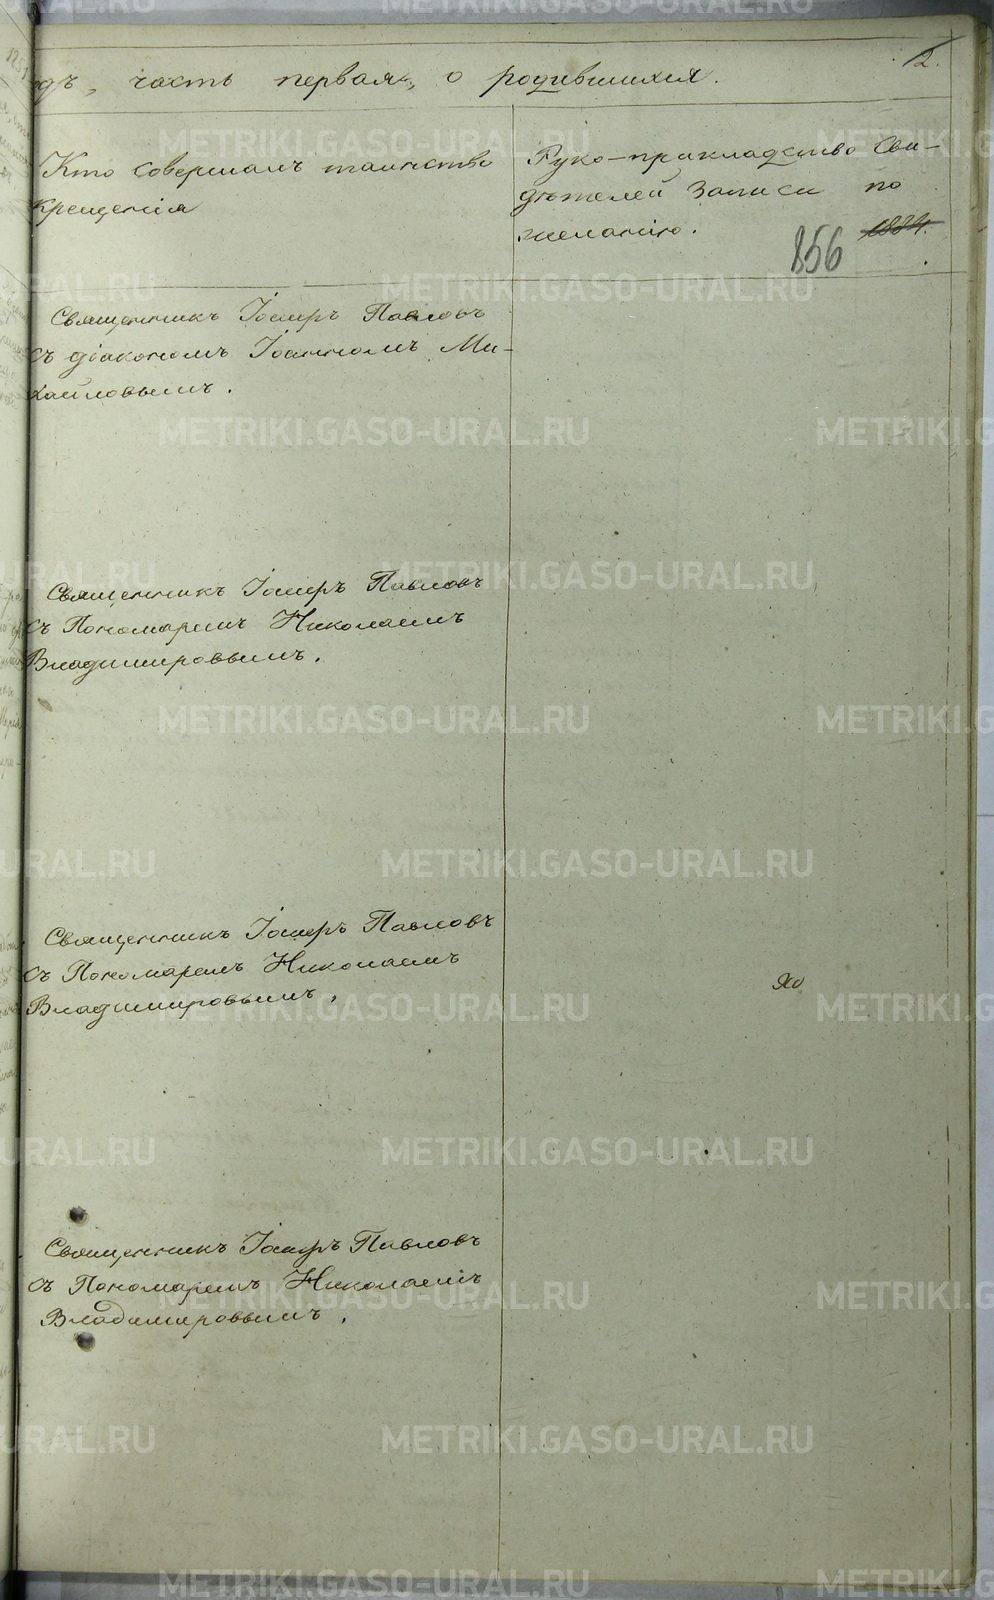 дъ, часть первая, о родившихся.
12.
Кто совершалъ таинство
крещенія
Руко-прикладство Сви-
дѣтелей записи по
желанію.
856
1884.
Священникъ Іосифъ Павловъ
съ діакономъ Іоанномъ Ми-
хайловымъ.
Священникъ Іосифъ Павловъ
съ Пономаремъ Николаемъ
Владимировымъ.
Священникъ Іосифъ Павловъ
съ Пономаремъ Николаемъ
Владимировымъ.
Священникъ Іосифъ Павловъ
съ Пономаремъ Николаемъ
Владимировымъ.
METRIKI.GASO-URAL.RU